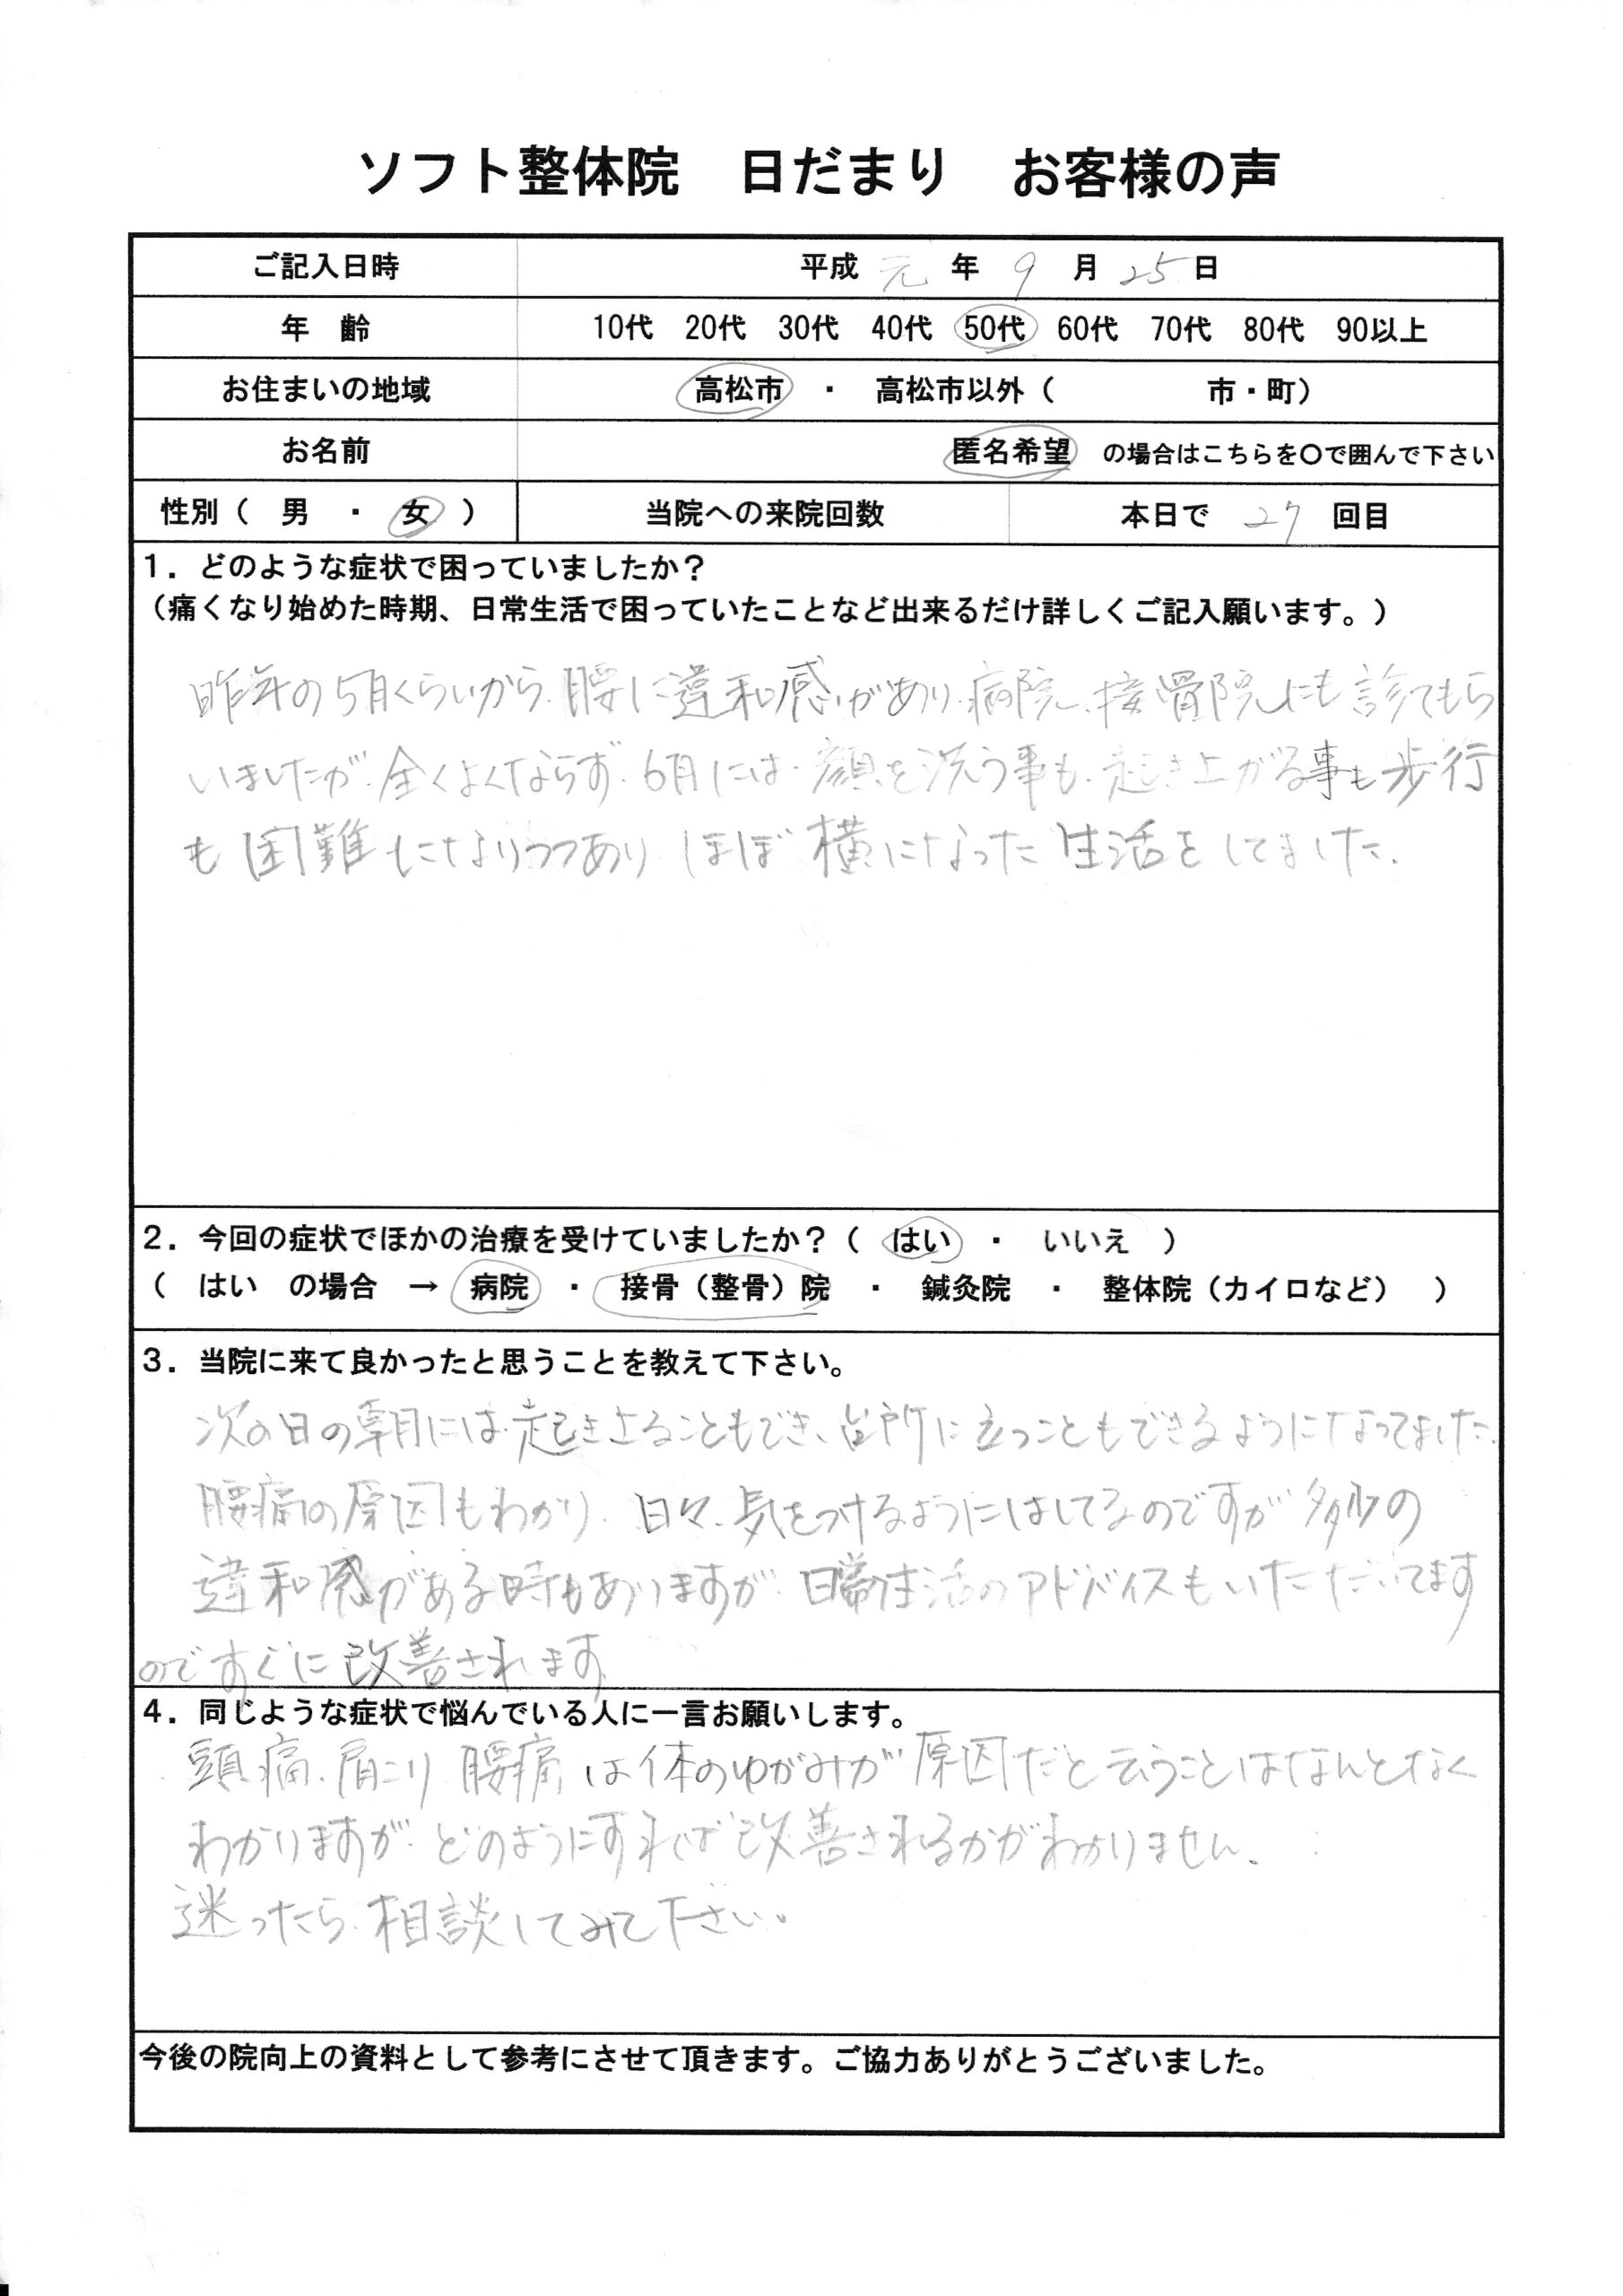 ソフト整体院　日だまり　お客様の声
ご記入日時　平成 元 年 9 月 25 日
年　齢　10代　20代　30代　40代　50代　60代　70代　80代　90以上
お住まいの地域　高松市　・　高松市以外（　　　　　市・町）
お名前　匿名希望　の場合はこちらを〇で囲んで下さい
性別（　男　・　女　）　当院への来院回数　本日で　27　回目
１．どのような症状で困っていましたか？
（痛くなり始めた時期、日常生活で困っていたことなど出来るだけ詳しくご記入願います。）
昨年の5月くらいから、腰に違和感があり、病院、接骨院にも診てもら
いましたが、全くよくならず、6月には、顔を洗う事も、起き上がる事も歩行
も困難になりつつあり、ほぼ横になった生活をしてました。
２．今回の症状でほかの治療を受けていましたか？（　はい　・　いいえ　）
（　はい　の場合　→　病院　・　接骨（整骨）院　・　鍼灸院　・　整体院（カイロなど）　）
３．当院に来て良かったと思うことを教えて下さい。
次の日の朝には、起きさることもでき、台所に立つこともできるようになってました。
腰痛の原因もわかり、日々、気をつけるようにはしてるのですが多少の
違和感がある時もありますが、日常生活のアドバイスもいただいてます
のですぐに改善されます
４．同じような症状で悩んでいる人に一言お願いします。
頭痛、肩こり、腰痛は体のゆがみが原因だと云うことはなんとなく
わかりますが、どのようにすれば改善されるかがわかりません、
迷ったら、相談してみて下さい。
今後の院向上の資料として参考にさせて頂きます。ご協力ありがとうございました。